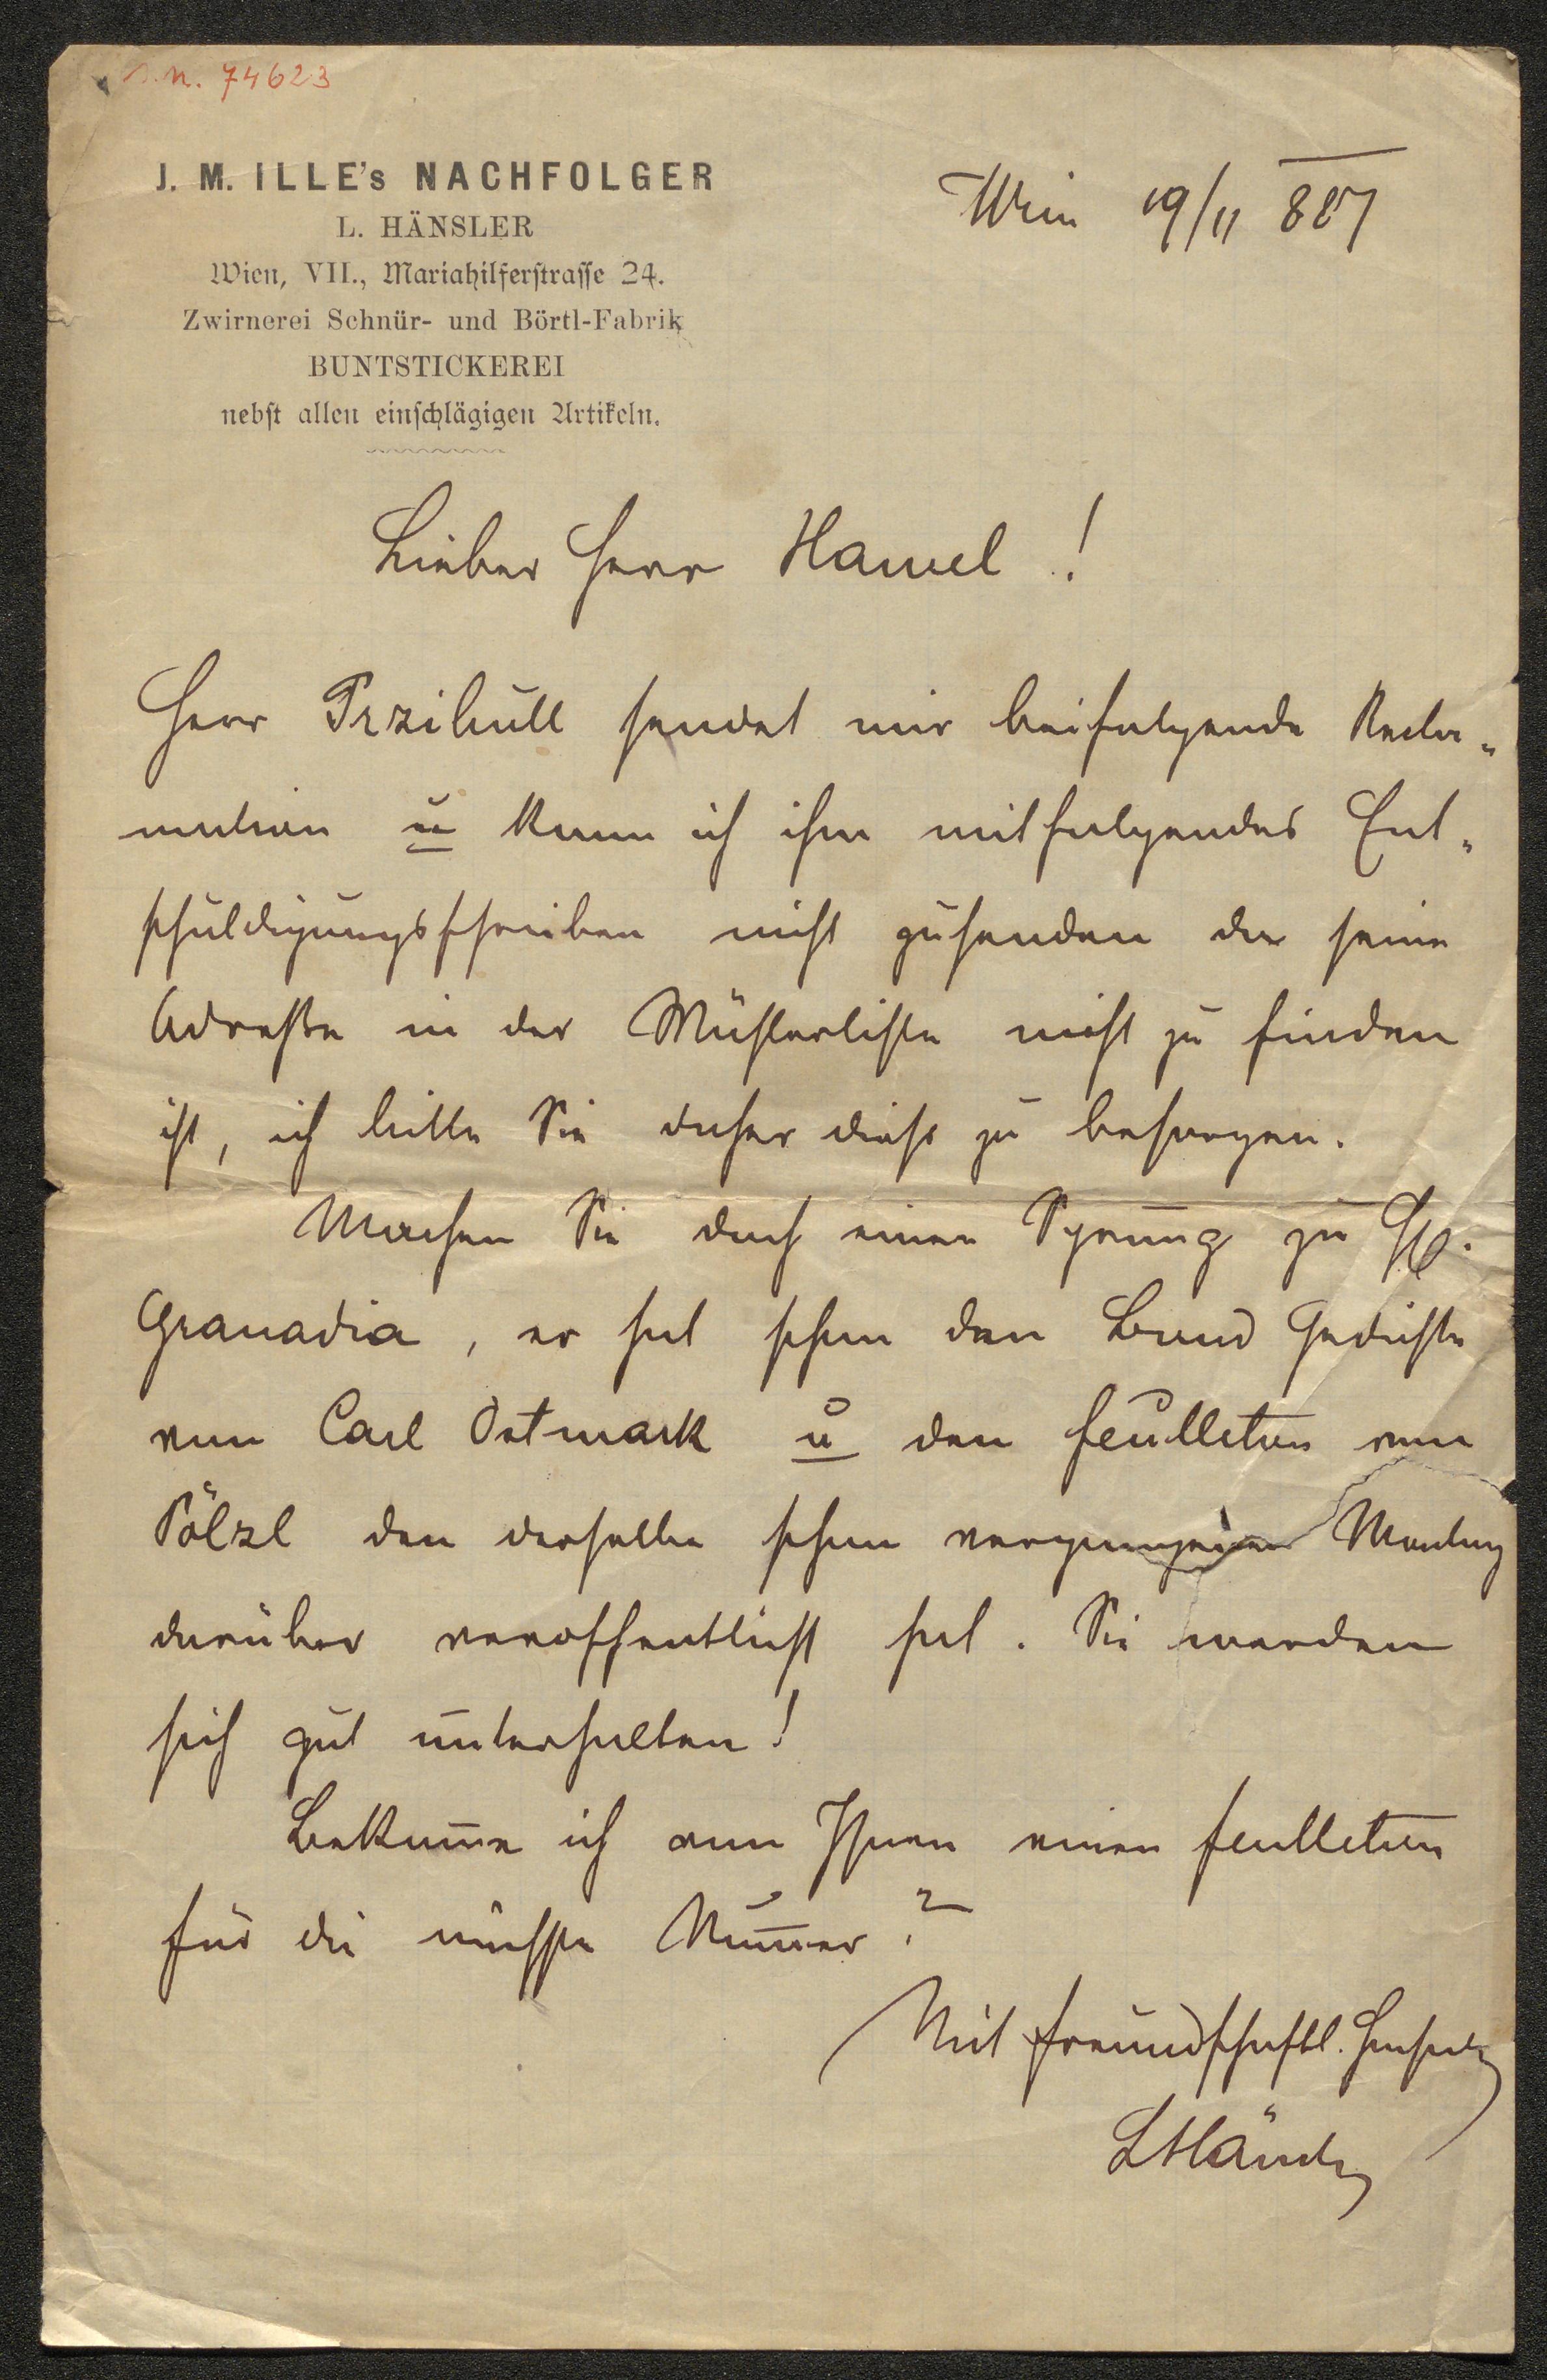 I.N. 74623
J. M. ILLE's NACHFOLGER
L. HÄNSLER
Wien, VII., Mariahilferstrasse 24.
Zwirnerei Schnür- und Börtl-Fabrik
BUNTSTICKEREI
nebst allen einschlägigen Artikeln.
Wien 19/11 887
Lieber Herr Hawel!
Herr Przibull sendet mir beifolgende Recla-
mation u kann ich ihm mitfolgendes Ent-
schuldigungsschreiben nicht zusenden da seine
Adreße in der Musterliste nicht zu finden
ist, ich bitte Sie daher dieß zu besorgen.
Machen Sie doch einen Sprung zu H.
Granadia, er hat schon den Band Gedichte
von Carl Ostmark u den Feulleton von
Pölzl den derselbe schon vergangenen Montag
darüber veröffentlicht hat. Sie werden
sich gut unterhalten!
Bekome ich von Ihnen einen Feulleton
für die nächste Numer?
Mit freundschaftl. Hochachtg
LHänsler